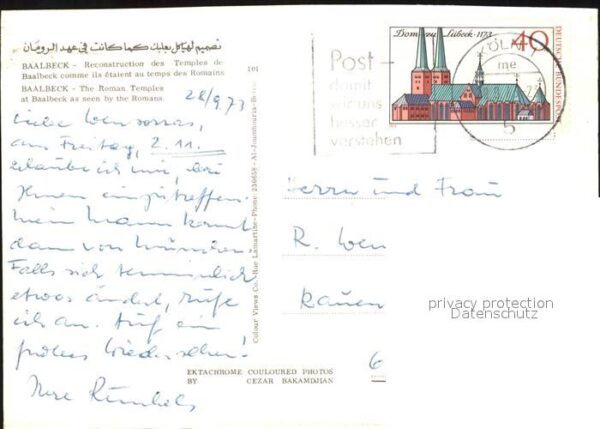 تصميم لهياكل بعلبك كما كانت في عهد الرومان
BAALBECK - Reconstruction des Temples de
Baalbeck comme ils étaient au temps des Romains
BAALBECK - The Roman Temples
at Baalbeck as seen by the Romans
101
28/9.73
Liebe
am Freitag, 2.11.
erlaube ich mir, bei
Ihnen einzutreffen.
Mein Mann kommt
dann von München.
Falls sich terminlich
etwas ändert, rufe
ich an. Auf ein
frohes Wiedersehen!
Ihre
Colour Views Co. Rue Lamartine - Phone: 236658 - Al-Joumhouria
EKTACHROME COULOURED PHOTOS
BY CEZAR BAKAMDJIAN
Post -
damit
wir uns
besser
verstehen
Dom zu Lübeck · 1173
40
DEUTSCHE BUNDESPOST
KÖLN
me
73
5
Herrn und Frau
R. Wen
6
privacy protection
Datenschutz